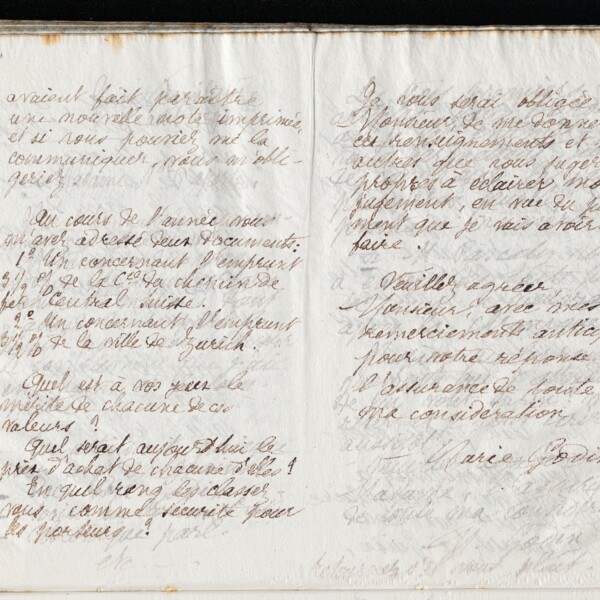 avaient fait paraître
une nouvelle note imprimée,
et si vous pouviez me la
communiquer, vous m'obli-
geriez
Au cours de l'année, vous
m'avez adressé deux documents:
1º Un concernant l'emprunt
3 1/2 % de la Cie du chemin de
fer Central Suisse.
2º Un concernant l'emprunt
3 1/2 % de la ville de Zurich.
Quel est à vos yeux le
mérite de chacune de ces
valeurs ?
Quel serait aujourd'hui le
prix d'achat de chacune d'elles ?
En quel rang les classez
vous comme sécurité pour
les porteurs ?
Je vous serai obligée
Monsieur de me donne
ces renseignements et
autres que vous juger
propres à éclairer mo
jugement, en vue du
ment que je vais avoir
faire.
Veuillez agréer,
Monsieur, avec mes
remerciements antici
pour votre réponse
l'assurance de toute
ma considération
Marie Godin